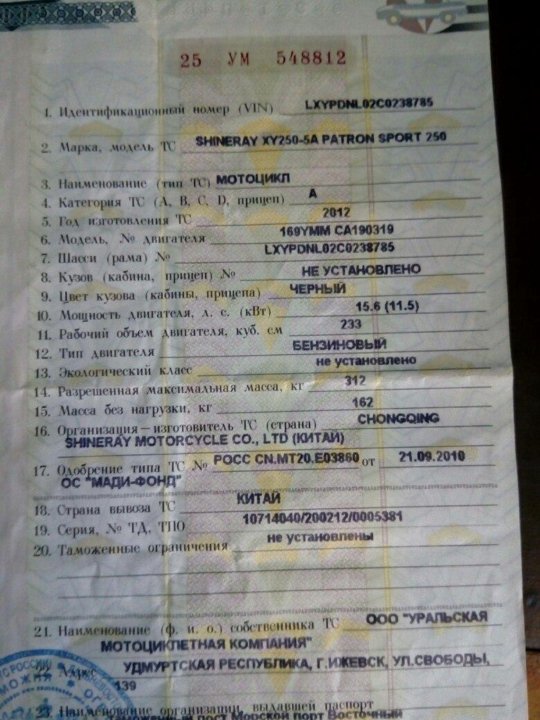 25 УМ 548812
1. Идентификационный номер (VIN) LXYPDNL02C0238785
2. Марка, модель ТС SHINERAY XY250-5A PATRON SPORT 250
3. Наименование (тип ТС) МОТОЦИКЛ
4. Категория ТС (А, В, С, D, прицеп) А
5. Год изготовления ТС 2012
6. Модель, № двигателя 169YMM CA190319
7. Шасси (рама) № LXYPDNL02C0238785
8. Кузов (кабина, прицеп) № НЕ УСТАНОВЛЕНО
9. Цвет кузова (кабины, прицепа) ЧЕРНЫЙ
10. Мощность двигателя, л. с. (кВт) 15.6 (11.5)
11. Рабочий объем двигателя, куб. см 233
12. Тип двигателя БЕНЗИНОВЫЙ
13. Экологический класс не установлено
14. Разрешенная максимальная масса, кг 312
15. Масса без нагрузки, кг 162
16. Организация—изготовитель ТС (страна) CHONGQING
SHINERAY MOTORCYCLE CO., LTD (КИТАЙ)
17. Одобрение типа ТС № РОСС CN.MT20.E03860 от 21.09.2010
ОС "МАДИ-ФОНД"
18. Страна вывоза ТС КИТАЙ
19. Серия, № ТД, ТПО 10714040/200212/0005381
20. Таможенные ограничения не установлены
21. Наименование (ф. и. о.) собственника ТС ООО "УРАЛЬСКАЯ
МОТОЦИКЛЕТНАЯ КОМПАНИЯ"
УДМУРТСКАЯ РЕСПУБЛИКА, Г.ИЖЕВСК, УЛ.СВОБОДЫ,
139
23. Наименование организации, выдавшей паспорт
Таможенный пост Морской порт Восточный